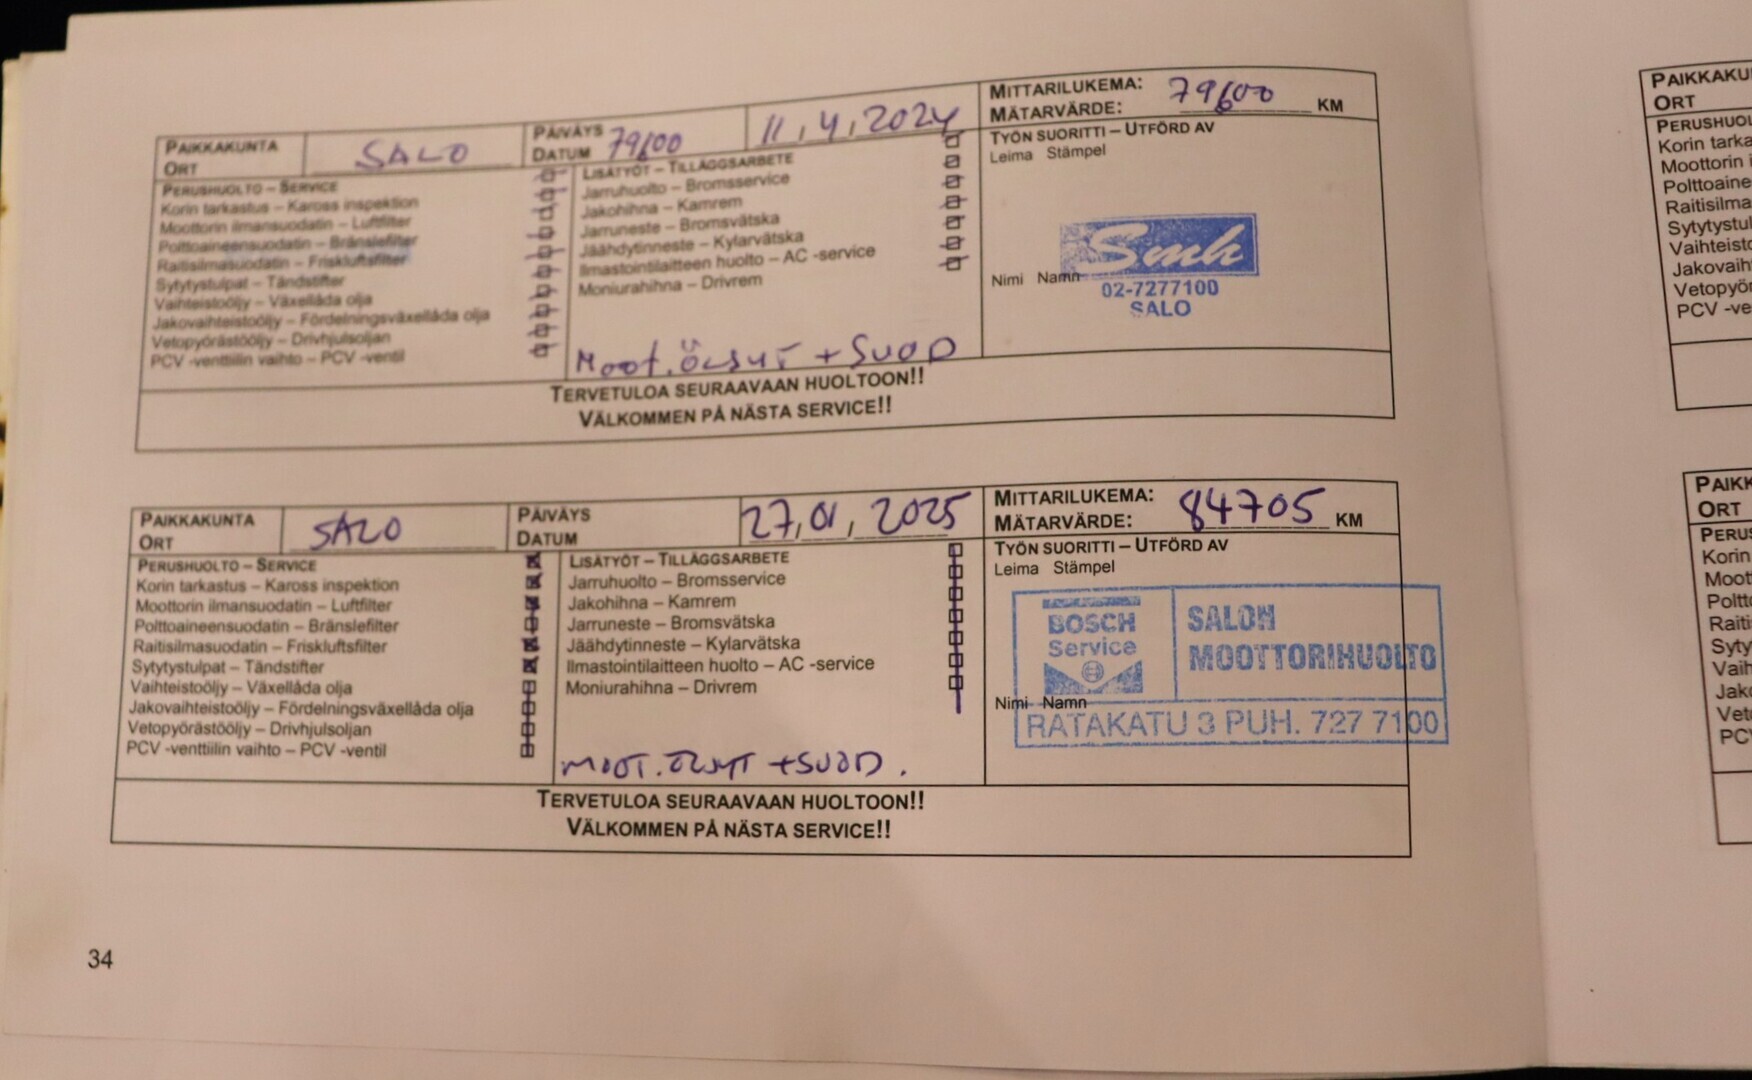 PAIKKAKUNTA
ORT
SALO
PÄIVÄYS
DATUM
79600
11.4.2024
MITTARILUKEMA:
MÄTARVÄRDE:
79600 KM
PERUSHUOLTO – SERVICE
Korin tarkastus – Kaross inspektion
Moottorin ilmansuodatin – Luftfilter
Polttoaineensuodatin – Bränslefilter
Raitisilmasuodatin – Friskluftsfilter
Sytytystulpat – Tändstifter
Vaihteistoöljy – Växellåda olja
Jakovaihteistoöljy – Fördelningsväxellåda olja
Vetopyörästööljy – Drivhjulsoljan
PCV -venttiilin vaihto – PCV -ventil
LISÄTYÖT – TILLÄGGSARBETE
Jarruhuolto – Bromsservice
Jakohihna – Kamrem
Jarruneste – Bromsvätska
Jäähdytinneste – Kylarvätska
Ilmastointilaitteen huolto – AC -service
Moniurahihna – Drivrem
Moot. ÖLJYT + SUOD
TYÖN SUORITTI – UTFÖRD AV
Leima Stämpel
Smh
Nimi Namn
02-7277100
SALO
TERVETULOA SEURAAVAAN HUOLTOON!!
VÄLKOMMEN PÅ NÄSTA SERVICE!!
PAIKKAKUNTA
ORT
SALO
PÄIVÄYS
DATUM
27.01.2025
MITTARILUKEMA:
MÄTARVÄRDE:
84705 KM
PERUSHUOLTO – SERVICE
Korin tarkastus – Kaross inspektion
Moottorin ilmansuodatin – Luftfilter
Polttoaineensuodatin – Bränslefilter
Raitisilmasuodatin – Friskluftsfilter
Sytytystulpat – Tändstifter
Vaihteistoöljy – Växellåda olja
Jakovaihteistoöljy – Fördelningsväxellåda olja
Vetopyörästööljy – Drivhjulsoljan
PCV -venttiilin vaihto – PCV -ventil
LISÄTYÖT – TILLÄGGSARBETE
Jarruhuolto – Bromsservice
Jakohihna – Kamrem
Jarruneste – Bromsvätska
Jäähdytinneste – Kylarvätska
Ilmastointilaitteen huolto – AC -service
Moniurahihna – Drivrem
MOOT. ÖLJYT + SUOD.
TYÖN SUORITTI – UTFÖRD AV
Leima Stämpel
BOSCH
Service
SALON
MOOTTORIHUOLTO
Nimi Namn
RATAKATU 3 PUH. 727 7100
TERVETULOA SEURAAVAAN HUOLTOON!!
VÄLKOMMEN PÅ NÄSTA SERVICE!!
34
PAIKKAKU
ORT
PERUSHUOL
Korin tarka
Moottorin i
Polttoaine
Raitisilma
Sytytystul
Vaihteisto
Jakovaih
Vetopyör
PCV -ve
PAIKK
ORT
PERUS
Korin
Moott
Poltto
Raiti
Syty
Vaih
Jako
Veto
PC